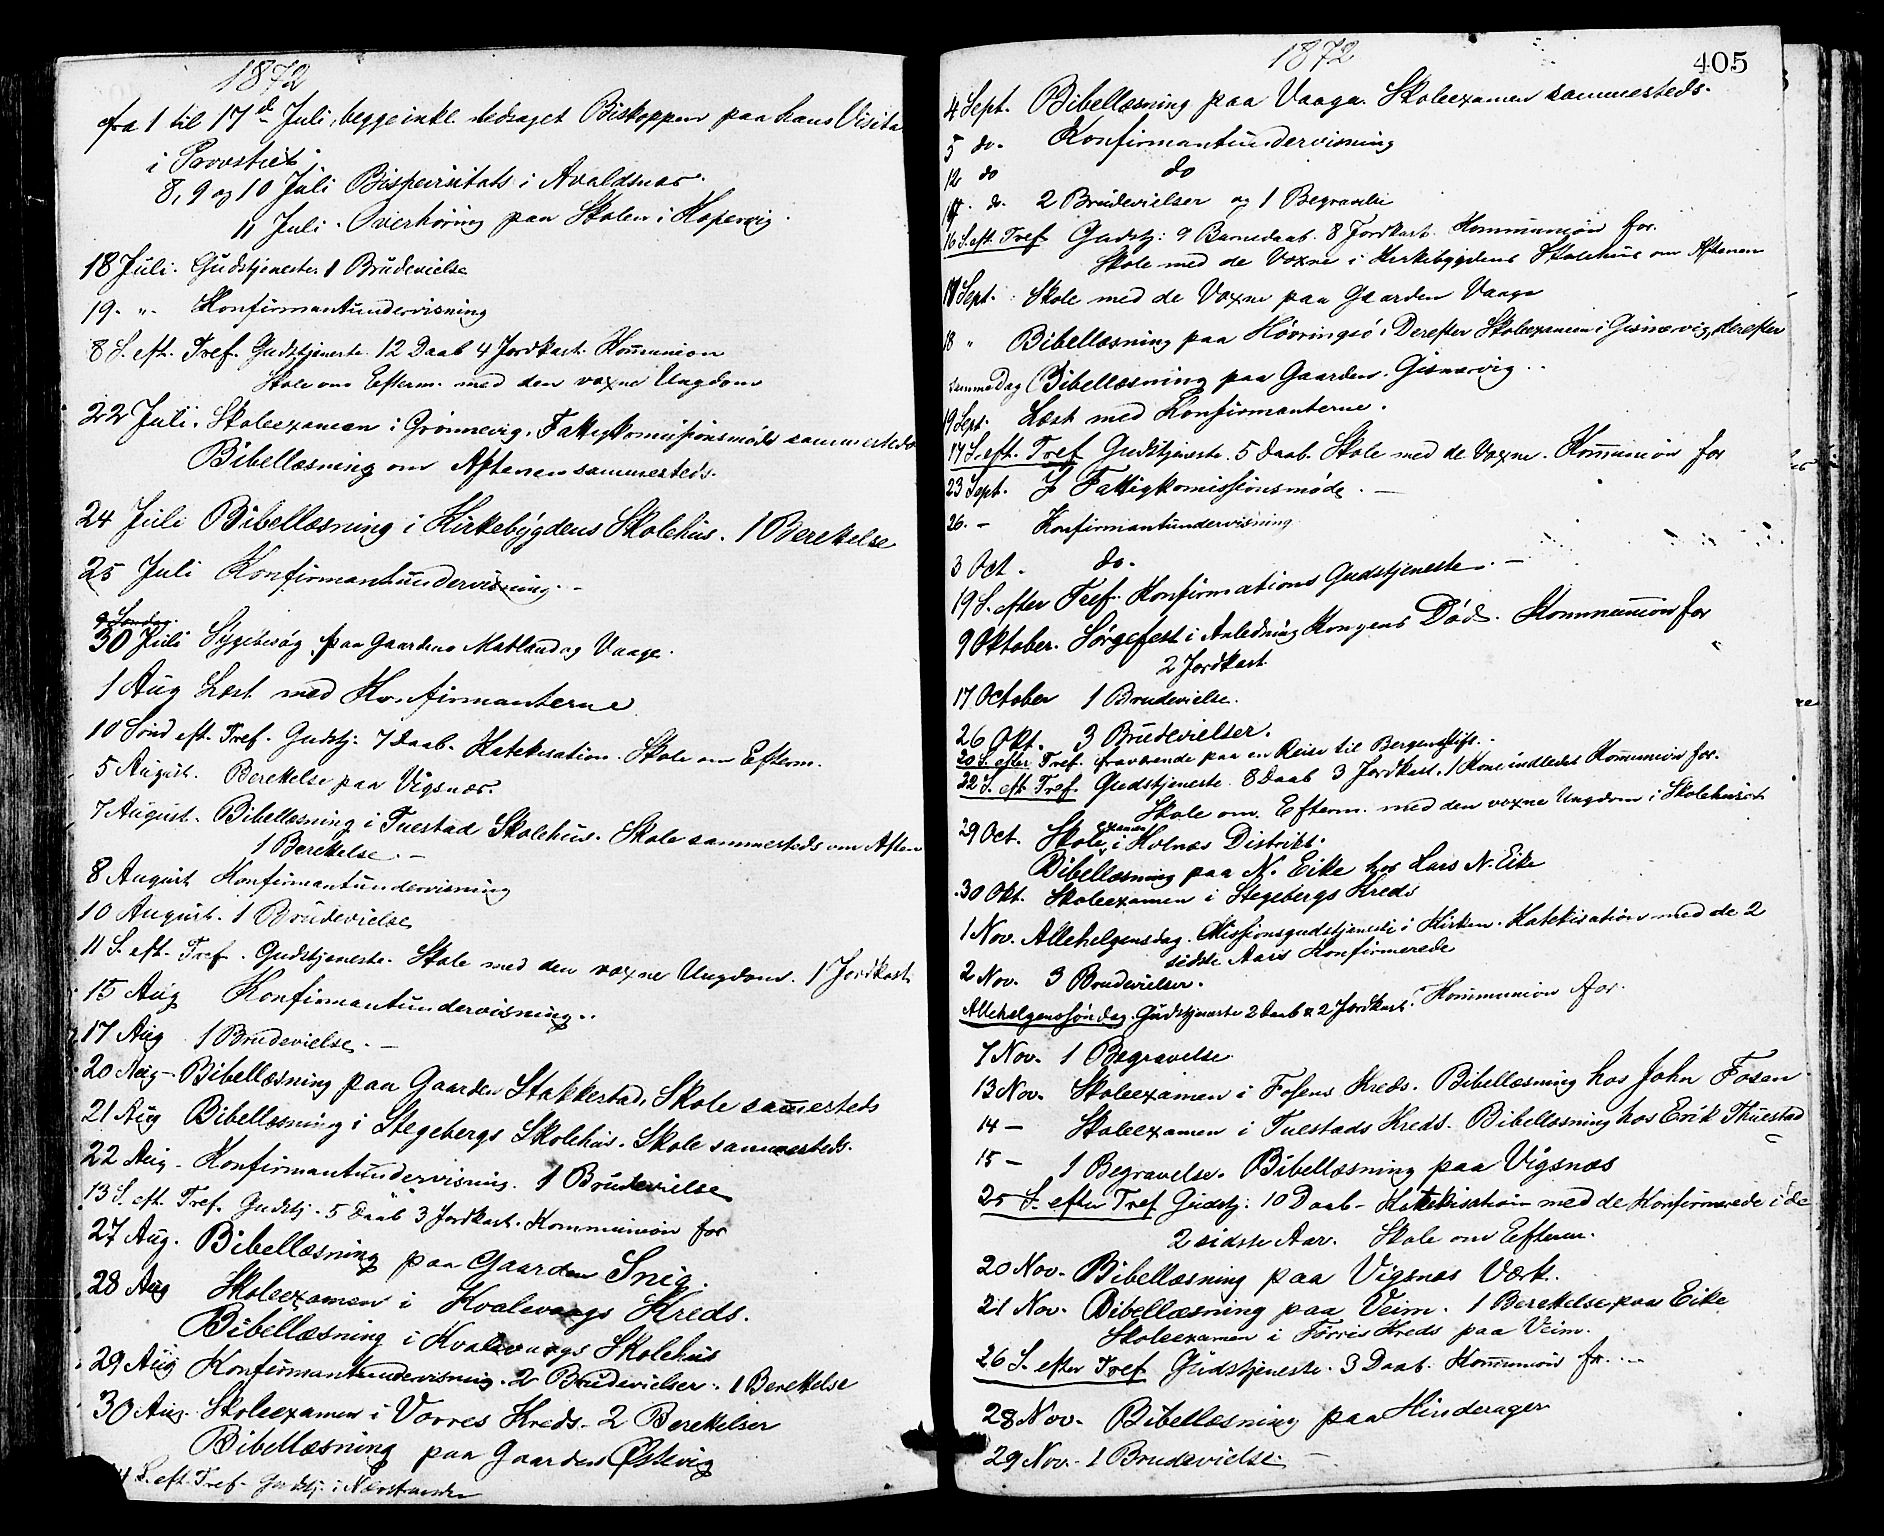 1872
fra 1 til 17d Juli, begge inkl. ledsaget Biskoppen paa hans Visita
i Provstiet.
8, 9 og 10 Juli Bispevisitats i Avaldsnæs.
11 Juli. Overhøring paa Skolen i Kopervig.
18 Juli. Gudstjeneste. 1 Brudevielse
19. " Konfirmantundervisning
8 S. eft. Tref. Gudstjeneste. 12 Daab 4 Jordkast. Kommunion
Skole om Efterm. med den voxne Ungdom
22 Juli. Skoleexamen i Grønnevig. Fattigkomissionsmøde sammesteds
Bibellæsning om Aftenen sammesteds.
24 Juli Bibellæsning i Kirkebygdens Skolehus. 1 Berettelse
25 Juli Konfirmantundervisning. -
9 Søndag.
30 Juli Sygebesøg paa Gaardene Matland og Vaage.
1 Aug Læst med Konfirmanterne
10 Sønd eft. Tref. Gudstj. 7 Daab. Katekisation. Skole om Efterm.
5 August. Berettelse paa Vigsnæs.
7 August. Bibellæsning i Tuestad Skolehus. Skole sammesteds om Aften
1 Berettelse. -
8 August Konfirmantundervisning
10 August. 1 Brudevielse
11 S. eft. Tref. Gudstjeneste. Skole med den voxne Ungdom. 1 Jordkast
15 Aug Konfirmantundervisning.
17 Aug 1 Brudevielse. -
20 Aug - Bibellæsning paa Gaarden Stakkestad, Skole sammesteds
21 Aug Bibellæsning i Stegebergs Skolehus. Skole sammesteds.
22 Aug - Konfirmantundervisning. 1 Brudevielse
13 S. eft. Tref. Gudstj. 5 Daab 3 Jordkast. Kommunion for
27 Aug. Bibellæsning paa Gaarden Snig.
28 Aug Skoleexamen i Kvalevaags Kreds.
Bibellæsning i Kvalevaags Skolehus
29 Aug Konfirmantundervisning. 2 Brudevielser. 1 Berettelse
30 Aug. Skoleexamen i Vorres Kreds. 2 Berettelser
Bibellæsning paa Gaarden Østevig
S. eft. Tref. Gudstj. i Nærstrand
1872
405
4 Sept. Bibellæsning paa Vaaga. Skoleexamen sammesteds.
5 do. Konfirmantundervisning
12 do do
do. 2 Brudevielser og 1 Begravelse
16 S. eft. Tref Gudstj: 9 Barnedaab. 8 Jordkast. Kommunion for.
Skole med de Voxne i Kirkebygdens Skolehus om Aftenen
Sept. Skole med de Voxne paa Gaarden Vaage
18 " Bibellæsning paa Høvringsø. Derefter Skoleexamen i Gismervig, derefter
samme Dag Bibellæsning paa Gaarden Gismervig.
19 Sept. Læst med Konfirmanterne.
17 S. eft. Tref Gudstjeneste. 5 Daab. Skole med de Voxne. Kommunion for
23 Sept. I Fattigkomissionsmøde. -
26. - Konfirmantundervisning
3 Oct. do.
19 S. efter Tref. Konfirmations Gudstjeneste. -
9 Oktober. Sørgefest i Anledning Kongens Død. Kommunion for
2 Jordkast.
17 October 1 Brudevielse.
26 Okt. 3 Brudevielser.
20 S. efter Tref. fraværende paa en Reise til Bergens Stift. -
22 S. eft Tref. Gudstjeneste. 8 Daab 3 Jordkast. 1 Kone indledet Kommunion for.
Skole om Efterm. med den voxne Ungdom i Skolehuset
29 Oct. Skoleexamen i Holnæs Distrikt.
Bibellæsning paa N. Eike hos Lars N. Eike
30 Okt. Skoleexamen i Stegebergs Kreds
1 Nov. Allehelgensdag. Missionsgudstjeneste i Kirken. Katekisation med de 2
sidste Aars Konfirmerede
2 Nov. 3 Brudevielser.
Allehelgenssøndag. Gudstjeneste 2 Daab & 2 Jordkast. Kommunion for.
7 Nov. 1 Begravelse
13 Nov. Skoleexamen i Fosens Kreds. Bibellæsning hos John Fosen
14 - Skoleexamen i Tuestads Kreds. Bibellæsning hos Erik Thuestad
15 - 1 Begravelse. Bibellæsning paa Vigsnæs
25 S. efter Tref Gudstj: 10 Daab - Katekisation med de Konfirmerede i de
2 sidste Aar. Skole om Efterm.
20 Nov. Bibellæsning paa Vigsnæs Værk.
21 Nov. Bibellæsning paa Veim. 1 Berettelse paa Eike
Skoleexamen i Førris Kreds paa Veim.
26 S. efter Tref Gudstjeneste. 3 Daab. Kommunion for. -
28 Nov. Bibellæsning paa Hinderager
29 Nov. 1 Brudevielse. -